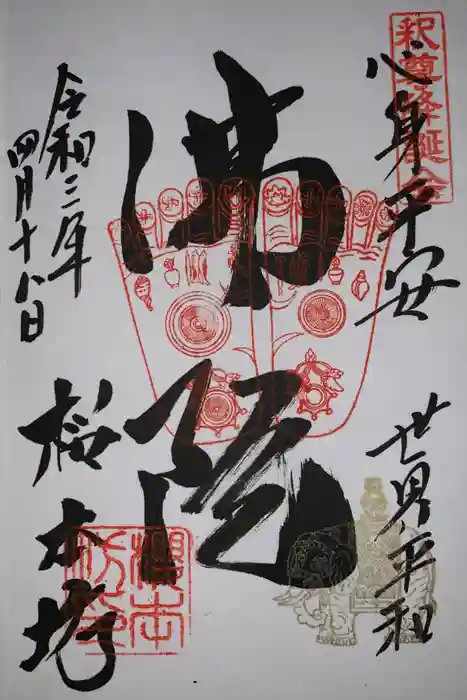 釈尊降誕会
心身平安
世界平和
佛陀
令和三年
四月十八日
桜本坊
櫻本
坊印